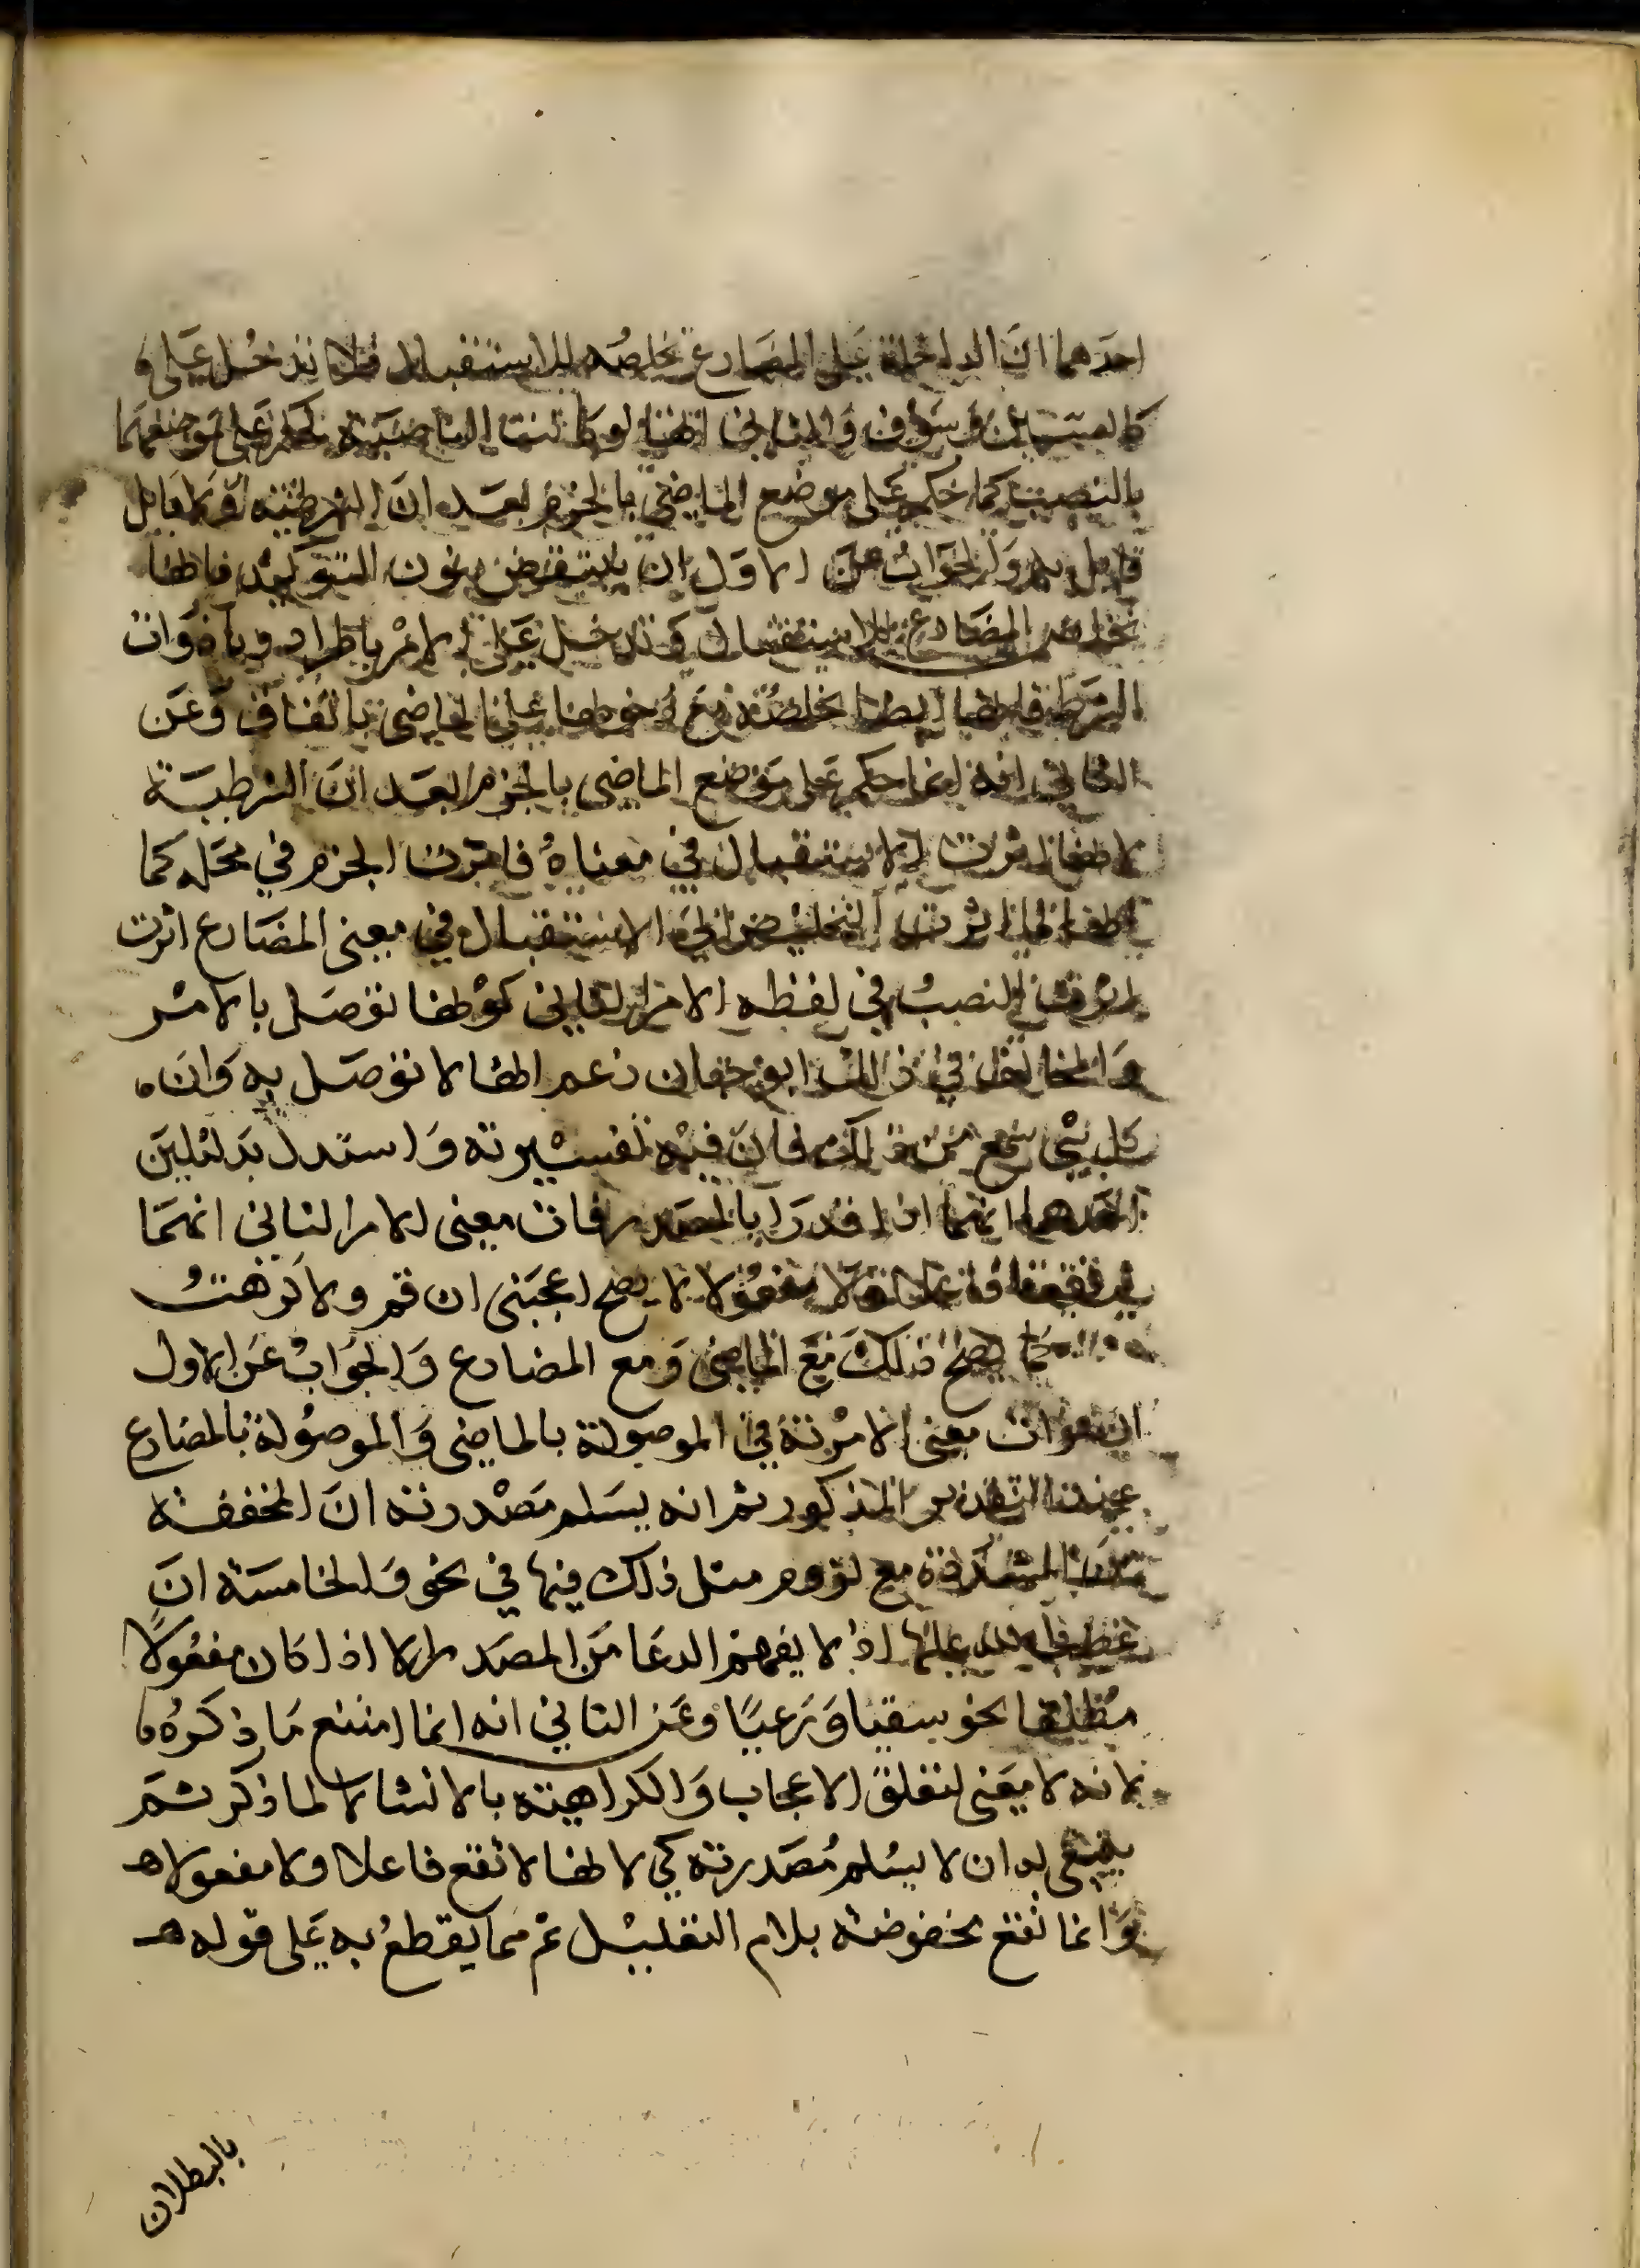 احدهما ان الداخلة على المضارع تخلصه للاستقبال فلا تدخل على
كالسين وسوف والثاني انها لو كانت الناصبة لحكم على موضعهما
بالنصب كما حكم على موضع الماضي بالجزم بعد ان الشرطية ولا قايل
به والجواب عن الاول ان ينتقض بنون التوكيد فانها
تخلص المضارع للاستقبال وتدخل على الامر باطراد وبادوات
الشرط فانها ايضا تخلصه مع دخولها على الماضي باتفاق وعن
الثاني انه انما حكم على موضع الماضي بالجزم بعد ان الشرطية
لانها اثرت الاستقبال في معناه فاثرت الجزم في محله كما
انها لما اثرت التخليص الى الاستقبال في معنى المضارع اثرت
النصب في لفظه الامر الثاني كونها توصل بالامر
والمخالف في ذلك ابو حيان زعم انها لا توصل به وان
كل شي سمع من ذلك فان فيه تفسيرية واستدل بدليلين
احدهما انهما اذا قدرا بالمصدر فات معنى الامر الثاني انهما
لم يقعا فاعلا ولا مفعولا لا يصح اعجبني ان قم ولا كرهت
كما يصح ذلك مع الماضي ومع المضارع والجواب عن الاول
ان فوات معنى الامرية في الموصولة بالماضي والموصولة بالمضارع
عند التقدير المذكور ثم انه يسلم مصدرية ان المخففة
من المشددة مع لزوم مثل ذلك فيها في نحو والخامسة ان
غضب الله عليها اذ لا يفهم الدعا من المصدر الا اذا كان مفعولا
مطلقا نحو سقيا ورعيا وعن الثاني انه انما امتنع ما ذكره
لانه لا معنى لتعلق الاعجاب والكراهية بالانشا لا لما ذكر ثم
ينبغي له ان لا يسلم مصدرية كي لانها لا تقع فاعلا ولا مفعولا
وانما تقع مخفوضة بلام التعليل ثم مما يقطع به على قوله
بالبطلان